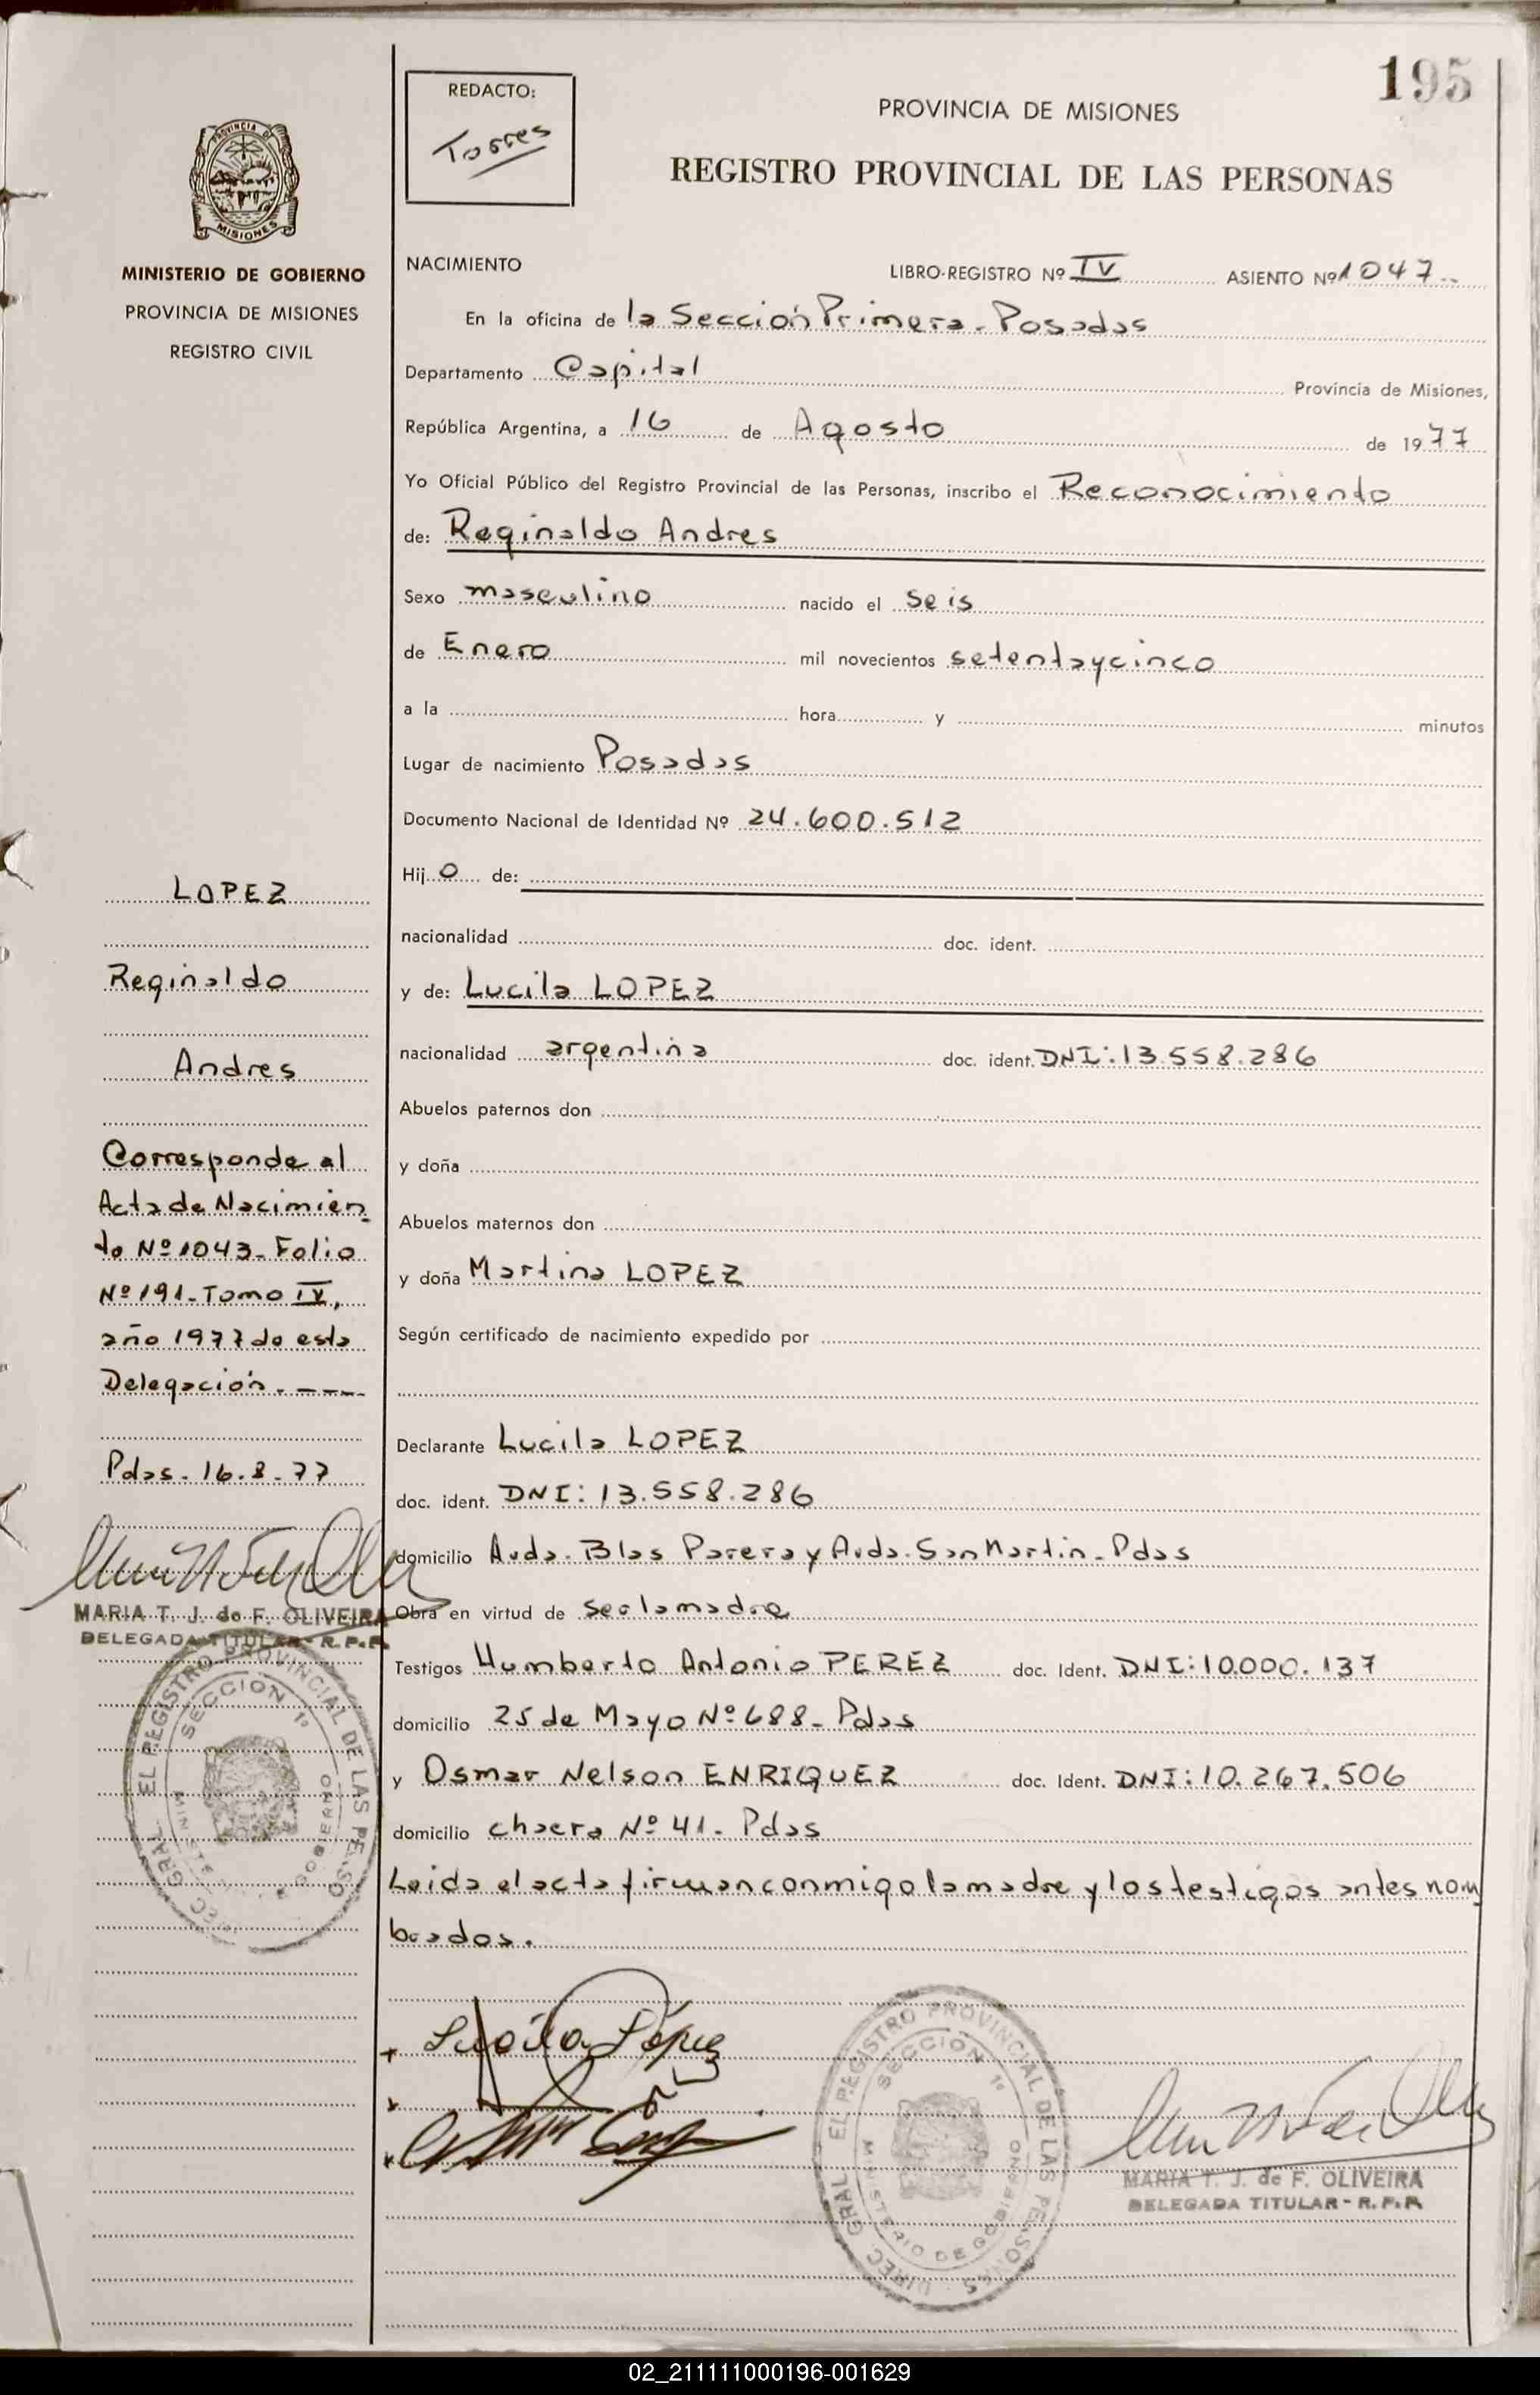 195
REDACTO:
Torres
PROVINCIA DE MISIONES
REGISTRO PROVINCIAL DE LAS PERSONAS
MISIONES
MINISTERIO DE GOBIERNO
PROVINCIA DE MISIONES
REGISTRO CIVIL
NACIMIENTO LIBRO-REGISTRO Nº IV ASIENTO Nº 1047
En la oficina de la Sección Primera - Posadas
Departamento Capital Provincia de Misiones,
República Argentina, a 16 de Agosto de 1977
Yo Oficial Público del Registro Provincial de las Personas, inscribo el Reconocimiento
de: Reginaldo Andres
Sexo masculino nacido el seis
de Enero mil novecientos setentaycinco
a la hora y minutos
Lugar de nacimiento Posadas
Documento Nacional de Identidad Nº 24.600.512
Hijo de:
nacionalidad doc. ident.
y de: Lucila LOPEZ
nacionalidad argentina doc. ident. DNI: 13.558.286
Abuelos paternos don
y doña
Abuelos maternos don
y doña Martina LOPEZ
Según certificado de nacimiento expedido por
Declarante Lucila LOPEZ
doc. ident. DNI: 13.558.286
domicilio Avda. Blas Parera y Avda. San Martin - Pdas
Obra en virtud de ser la madre
Testigos Humberto Antonio PEREZ doc. Ident. DNI: 10.000.137
domicilio 25 de Mayo Nº 688 - Pdas
y Osmar Nelson ENRIQUEZ doc. Ident. DNI: 10.267.506
domicilio chacra Nº 41 - Pdas
Leida el acta firman conmigo la madre y los testigos antes nom
brados.
Lucila López
MARIA T. J. de F. OLIVEIRA
DELEGADA TITULAR - R. P. P.
DIREC. GRAL. EL REGISTRO PROVINCIAL DE LAS PERSONAS
SECCION 1ª
MINISTERIO DE GOBIERNO
LOPEZ
Reginaldo
Andres
Corresponde al
Acta de Nacimien
to Nº 1043 - Folio
Nº 191 - Tomo IV,
año 1977 de esta
Delegación. ----
Pdas - 16.8.77
MARIA T. J. de F. OLIVEIRA
DELEGADA TITULAR - R. P. P.
EL REGISTRO PROVINCIAL DE LAS PERSO
SECCION 1ª
02_211111000196-001629